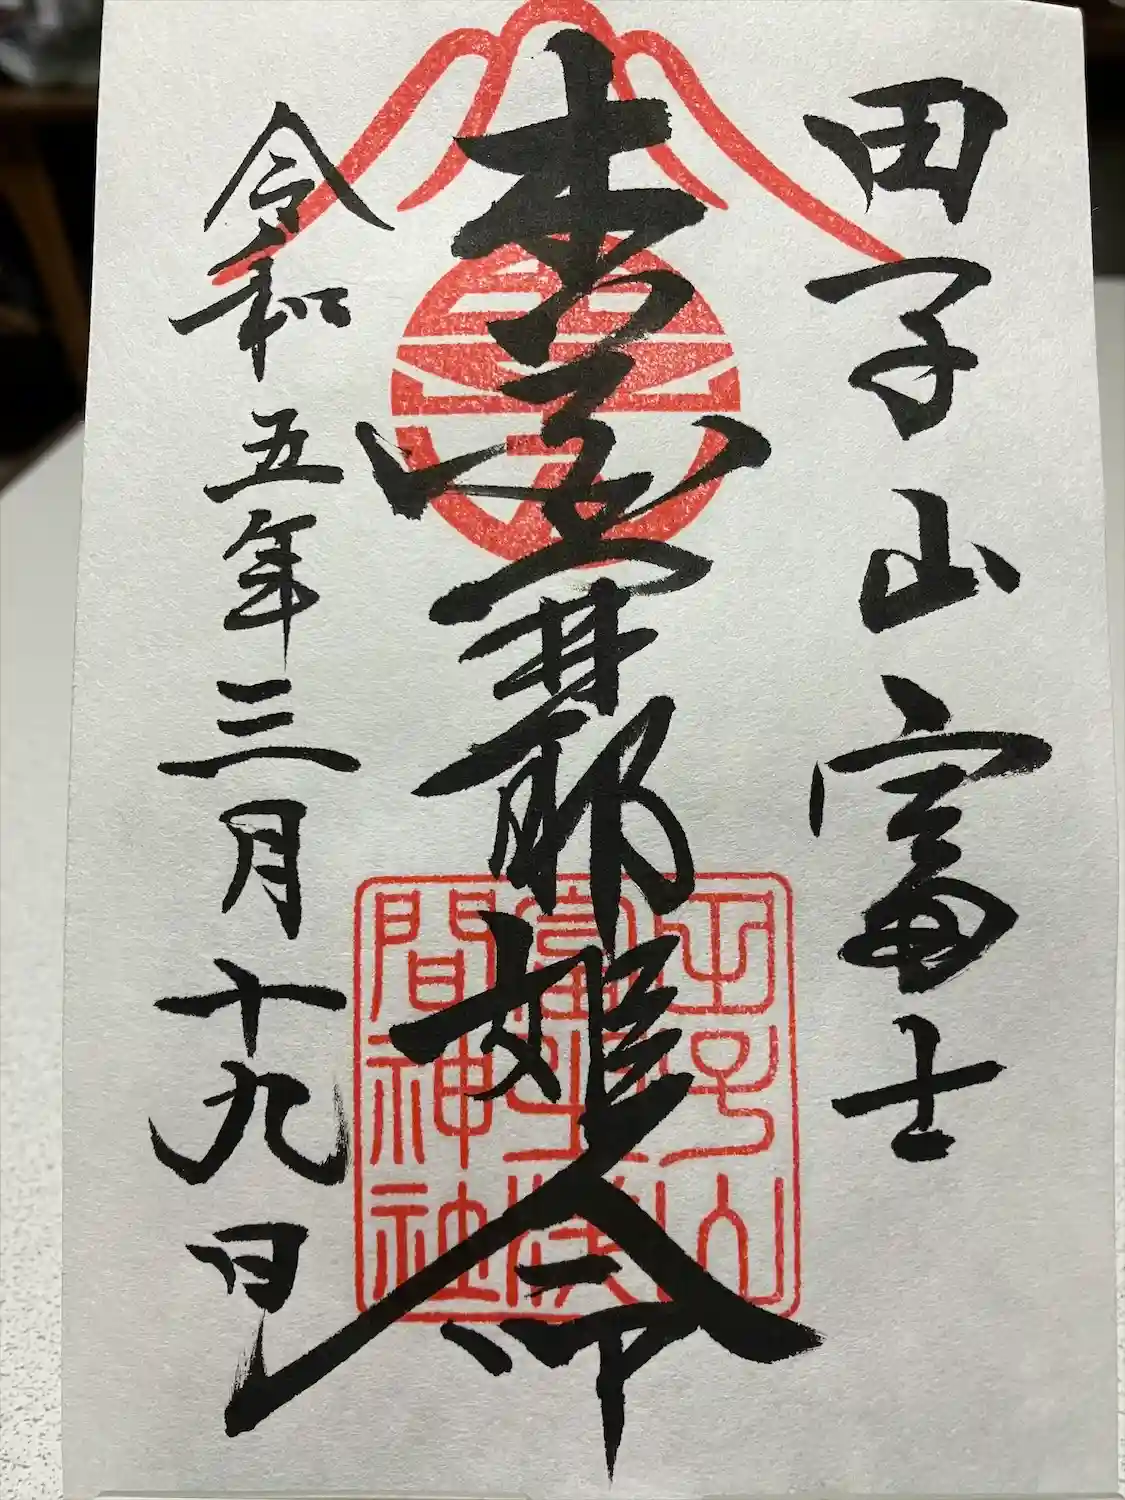 田子山富士
木花開耶姫命
令和五年三月十九日
田子山
富士淺
間神社